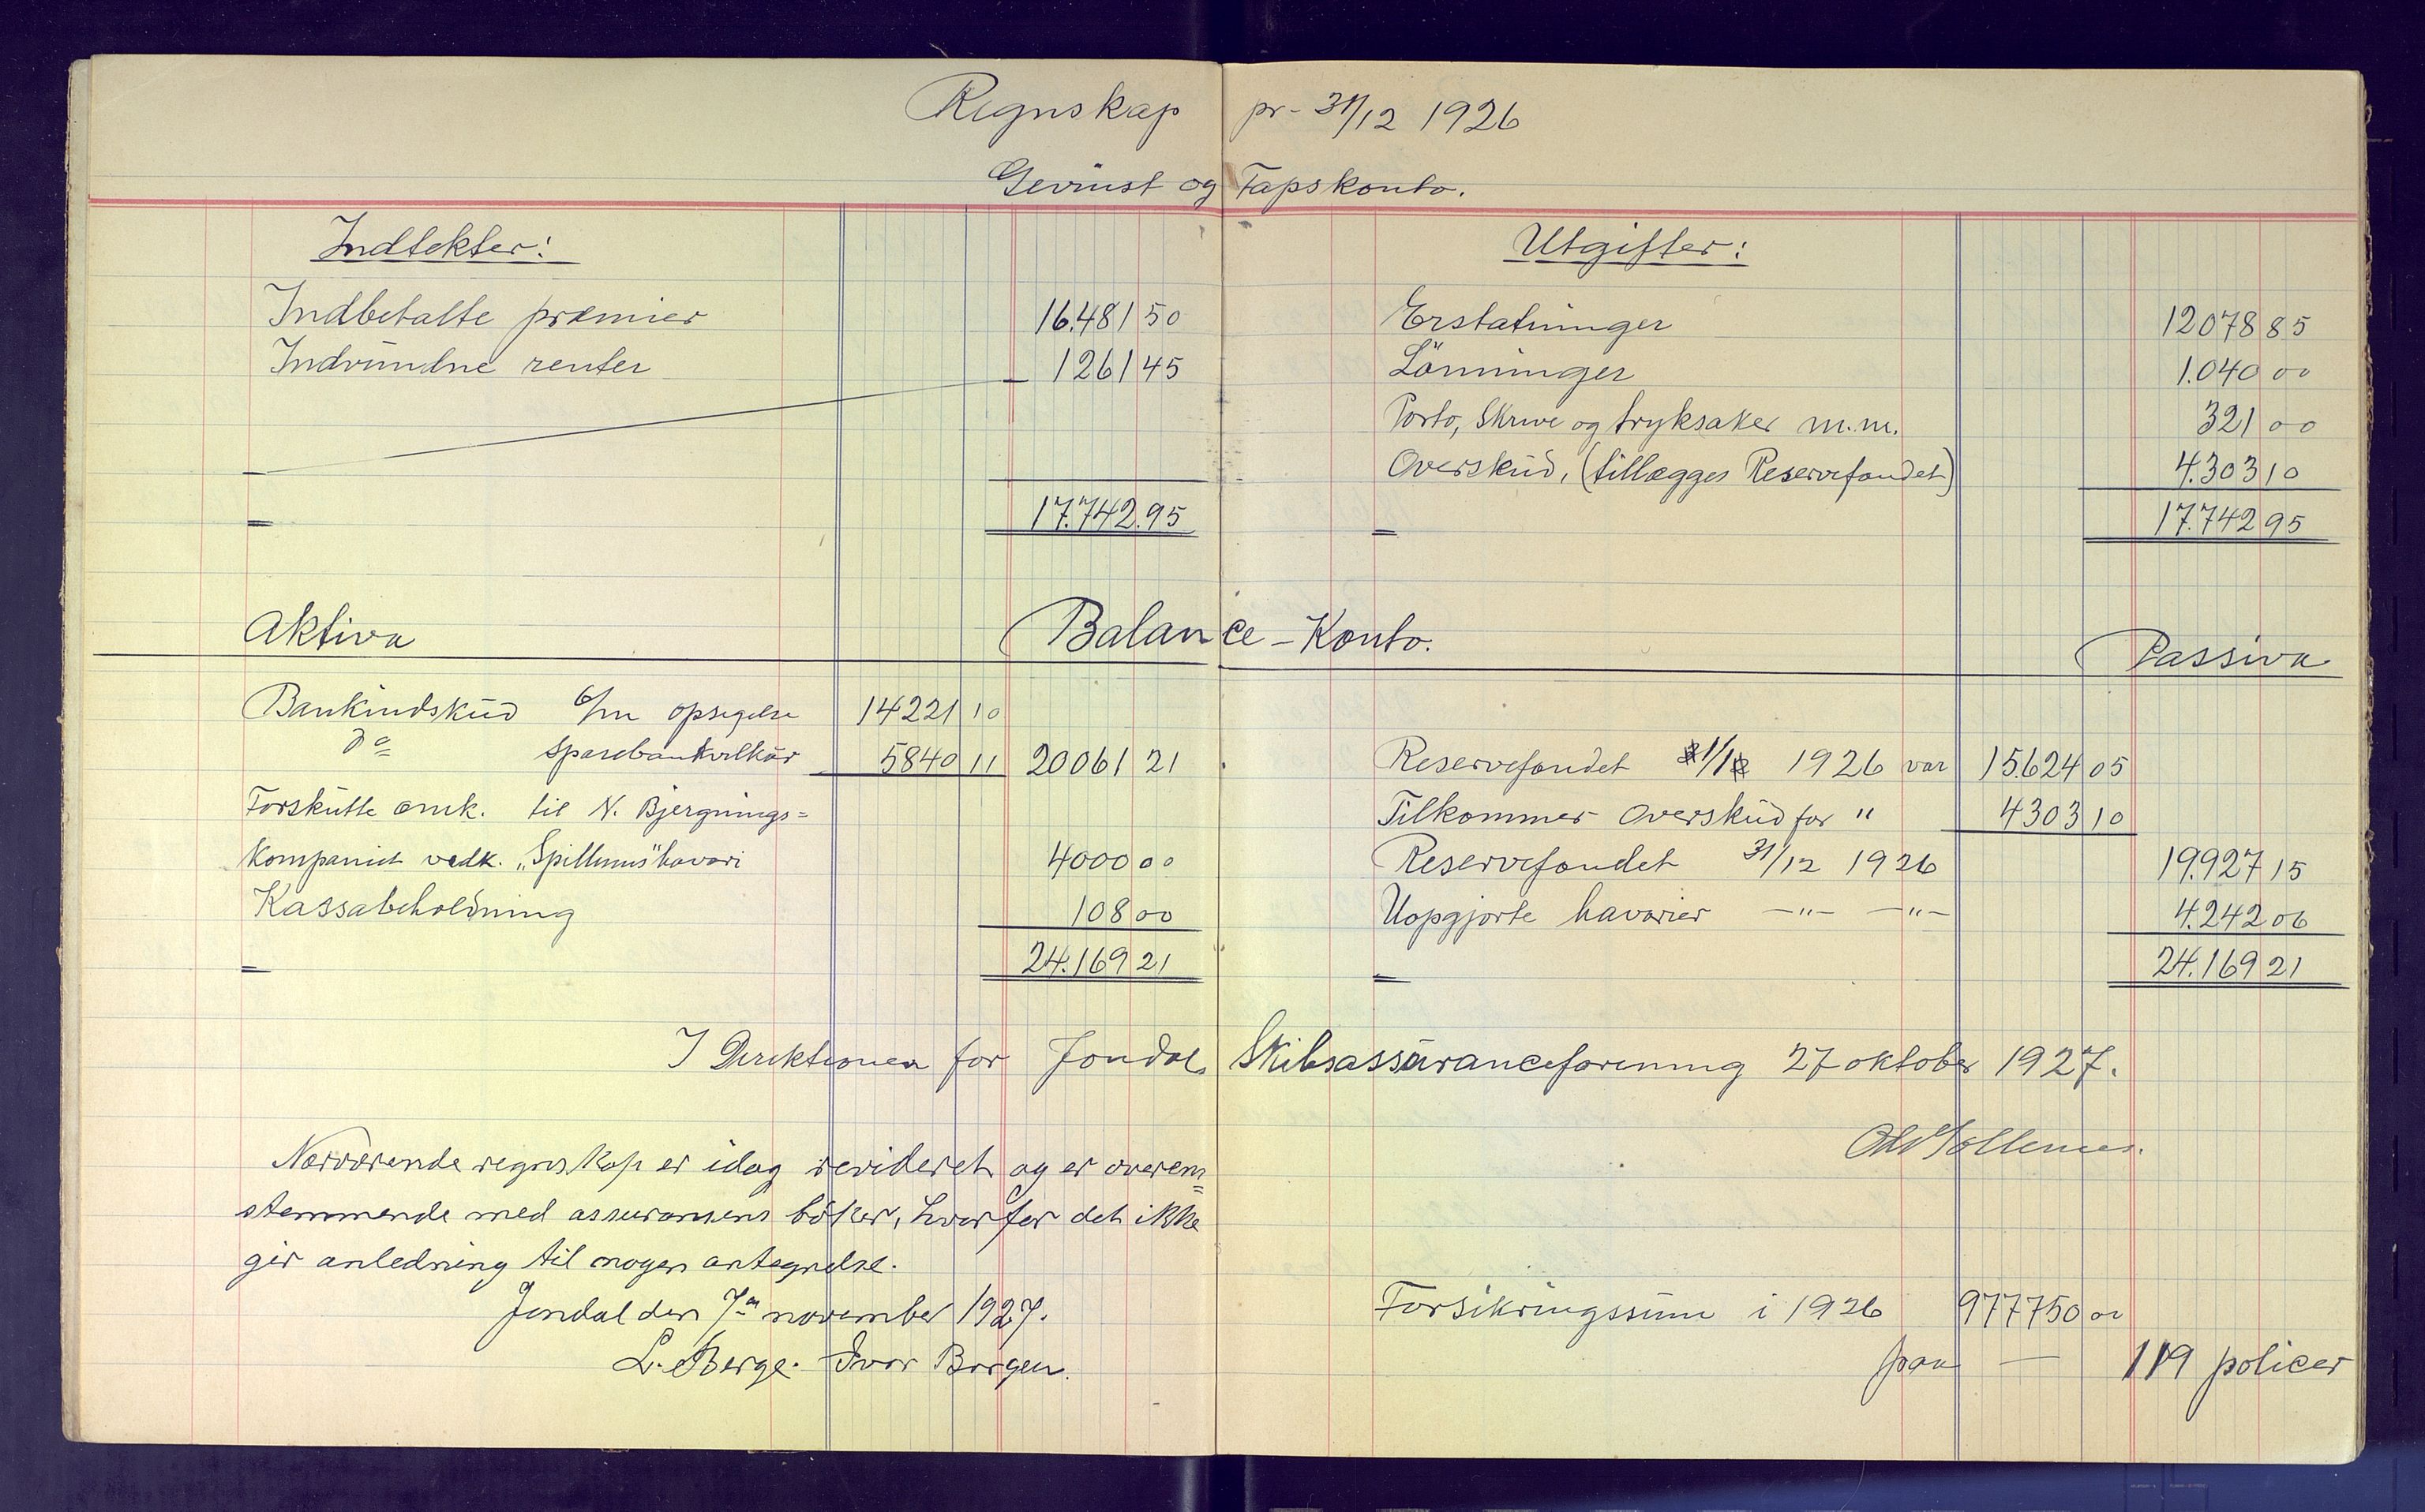 Regnskap pr. 31/12 1926
Gevinst og Tapskonto.
Indtekter:
Indbetalte præmier 16.481 50
Indvundne renter 1261 45
17.742.95
Utgifter:
Erstatninger 12078 85
Lönninger 1.040 00
Porto, Skrive og tryksaker m.m. 321 00
Overskud, (tillægges Reservefondet) 4.303 10
17.742 95
Balance-Konto.
Aktiva
Bankindskud 6/m opsigelse 14221 10
do sparebankvilkår 5840 11 20061 21
Forskutte omk. til N. Bjergnings=
kompaniet vedk. „Spillums" havari 4000 00
Kassabeholdning 108 00
24.169 21
Passiva
Reservefondet 1/1 1926 var 15.624 05
Tilkommer Overskud for " 4303 10
Reservefondet 31/12 1926 19.927 15
Uopgjorte havarier —"— —"— 4.242 06
24.169 21
I Direktionen for Jondal Skibsassuranceforening 27 oktober 1927.
Nærværende regnskap er idag revideret og er overens=
stemmende med assuransens böker, hvorfor det ikke
gir anledning til nogen antegnelse.
Jondal den 7de november 1927.
L. Berge. Ivar Borgen.
Forsikringssum i 1926 977750 00
paa — 119 policer